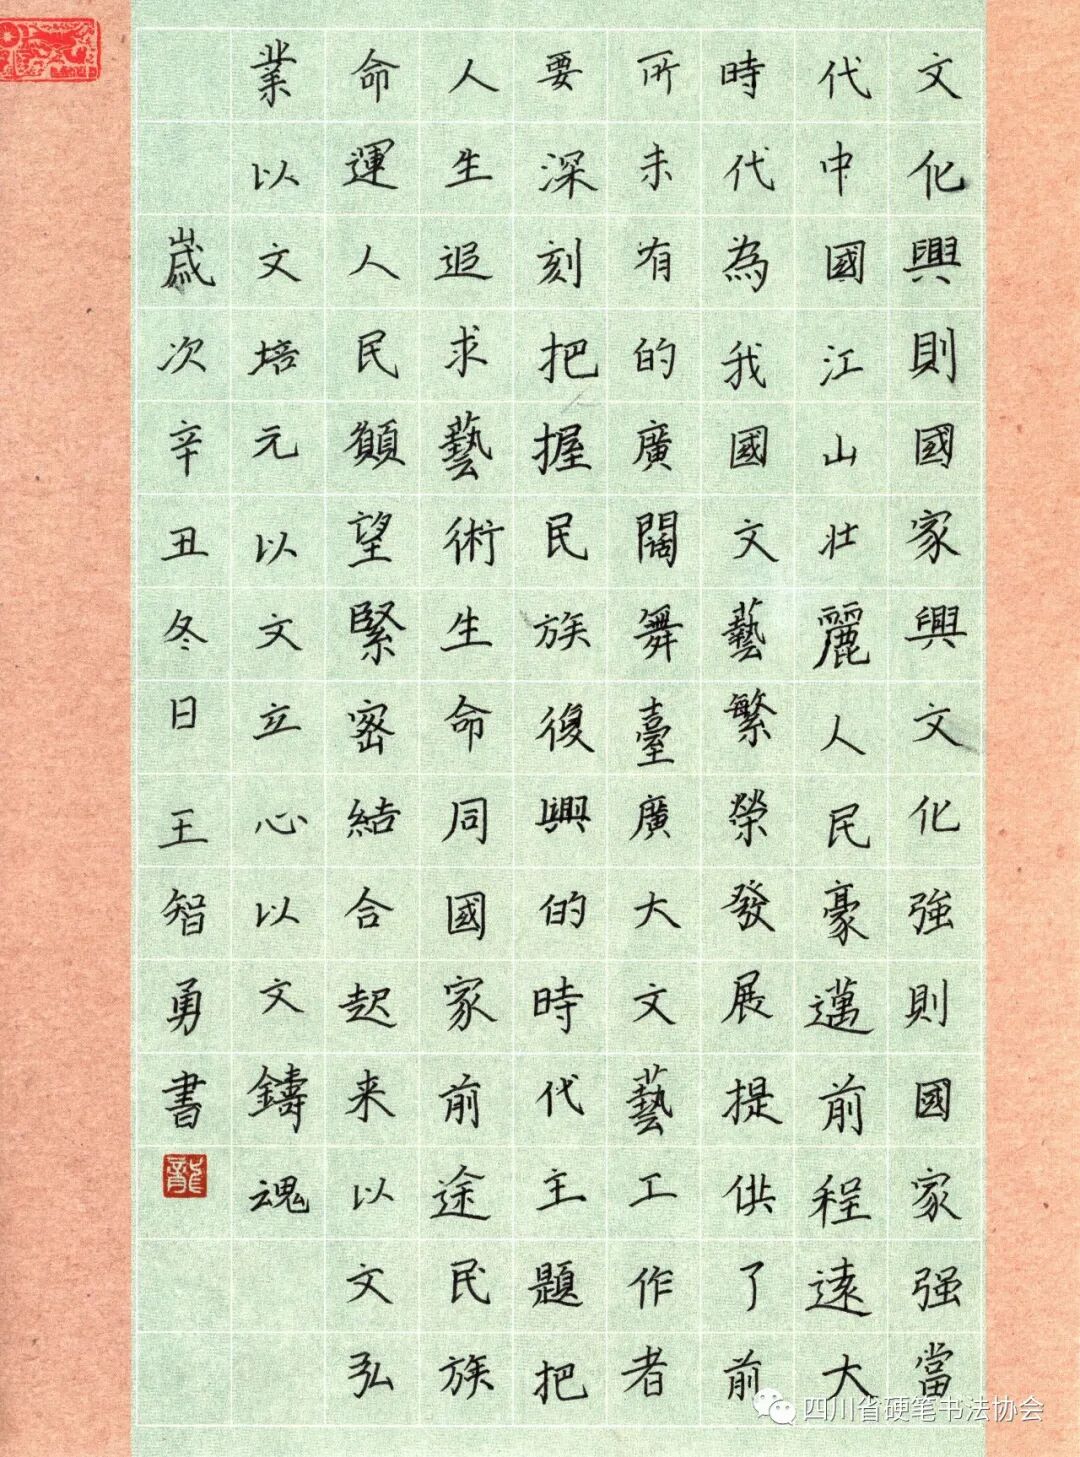 文化興則國家興文化強則國家强當
代中國江山壯麗人民豪邁前程遠大
時代為我國文藝繁榮發展提供了前
所未有的廣闊舞臺廣大文藝工作者
要深刻把握民族復興的時代主題把
人生追求藝術生命同國家前途民族
命運人民願望緊密結合起来以文弘
業以文培元以文立心以文鑄魂
歲次辛丑冬日王智勇書
龍
四川省硬笔书法协会